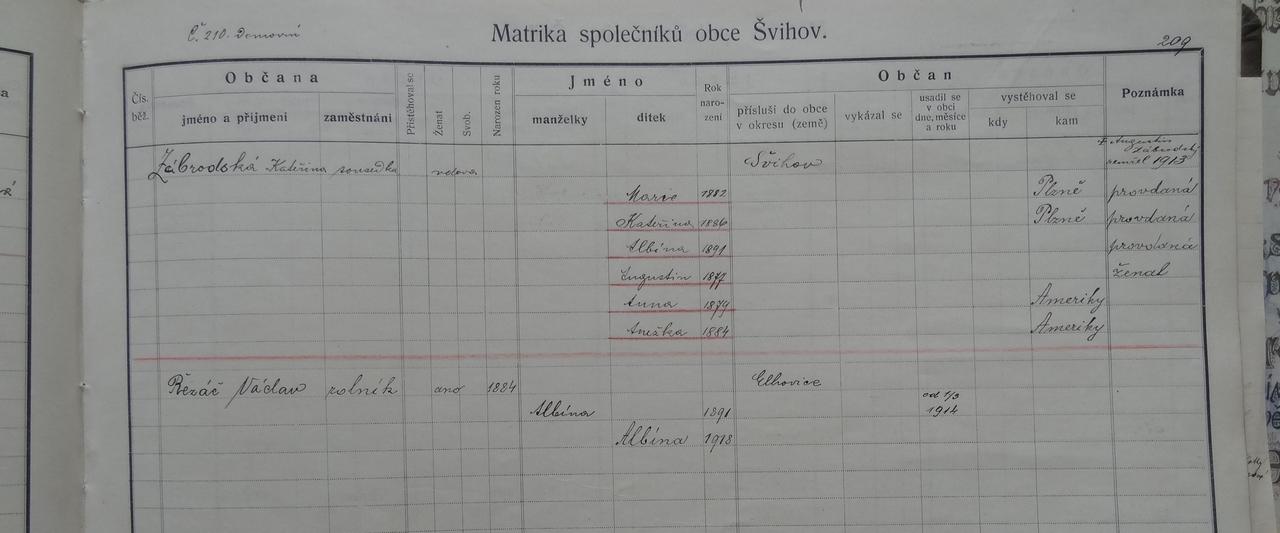 Č. 210. Domovní
Matrika společníků obce Švihov.
209
Občana
Jméno
Občan
Čís. běž.
jméno a přijmení
zaměstnání
Přistěhoval se
Ženat
Svob.
Narozen roku
manželky
dítek
Rok naro- zení
přísluší do obce v okresu (zemĕ)
vykázal se
usadil se v obci dne, měsíce a roku
vystěhoval se
kdy
kam
Poznámka
Zábrodská Kateřina sousedka vdova Švihov † Augustin Zábrodský zemřel 1913
Marie 1882 Plzně provdaná
Kateřina 1886 Plzně provdaná
Albína 1891 provdaná
Augustin 1877 ženat
Anna 1879 Ameriky
Anežka 1884 Ameriky
Řezáč Václav rolník ano 1884 Elhovice
Albína 1891 od 1/3 1914
Albína 1918